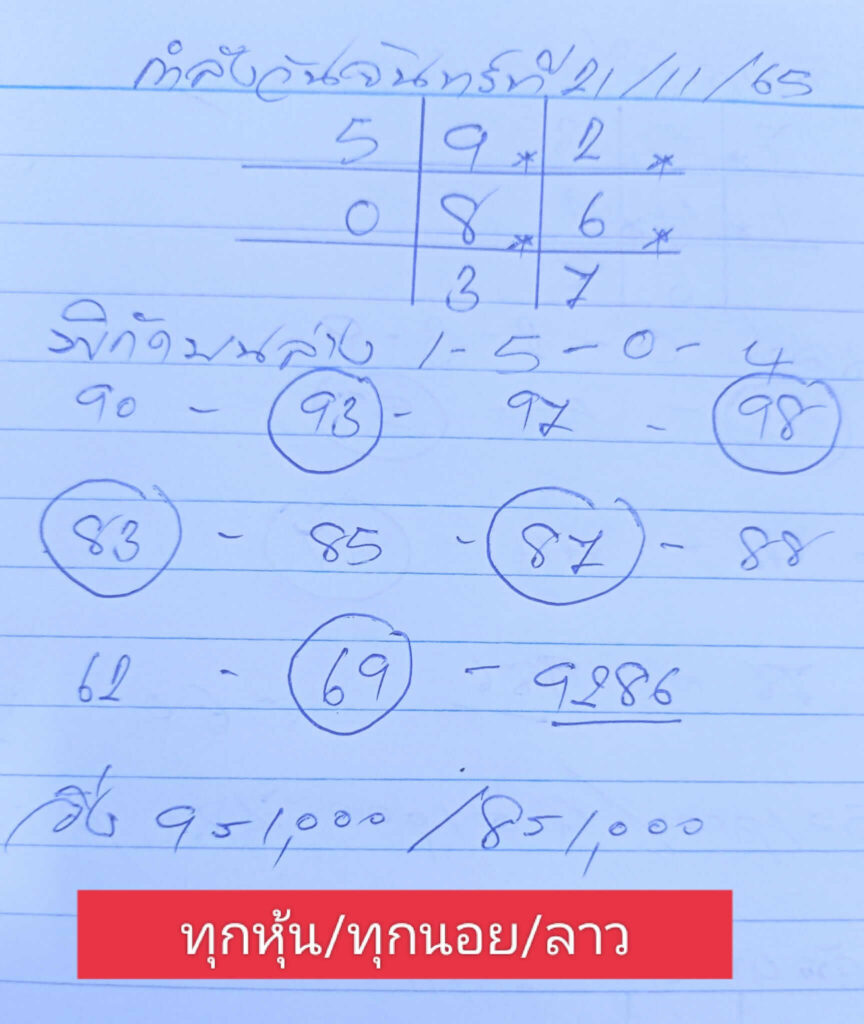 กำลังวันจันทร์ที่ 21/11/65
5 9* 2*
0 8* 6*
3 7
พิกัดบนล่าง 1-5-0-4
90 - 93 - 97 - 98
83 - 85 - 87 - 88
62 - 69 - 9286
วิ่ง 9=1,000/8=1,000
ทุกหุ้น/ทุกนอย/ลาว